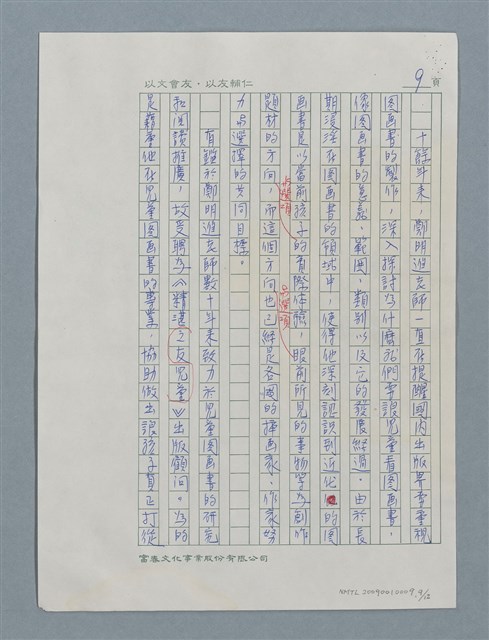 以文會友・以友輔仁
9頁
十餘年來，鄭明進老師一直在提醒國內出版界要重視
圖畫書的製作，深入探討為什麼我們要讓兒童看圖畫書，
像圖畫書的意義、範圍、類別以及它的發展經過。由於長
期浸淫在圖畫書的領域中，使得他深刻認識到近代的圖
畫書是以當前孩子的實際體驗，眼前所見的事物等為創作
題材的方向，而這個方向也已經是各國的插畫家、作家努
力與選擇的共同目標。
有鑑於鄭明進老師數十年來致力於兒童圖畫書的研究
和閱讀推廣，故受聘為《精湛之友兒童》出版顧問。為的
是藉重他在兒童圖畫書的專業，協助做出讓孩子真正打從
富春文化事業股份有限公司
NMTL 20090012009, 9/12